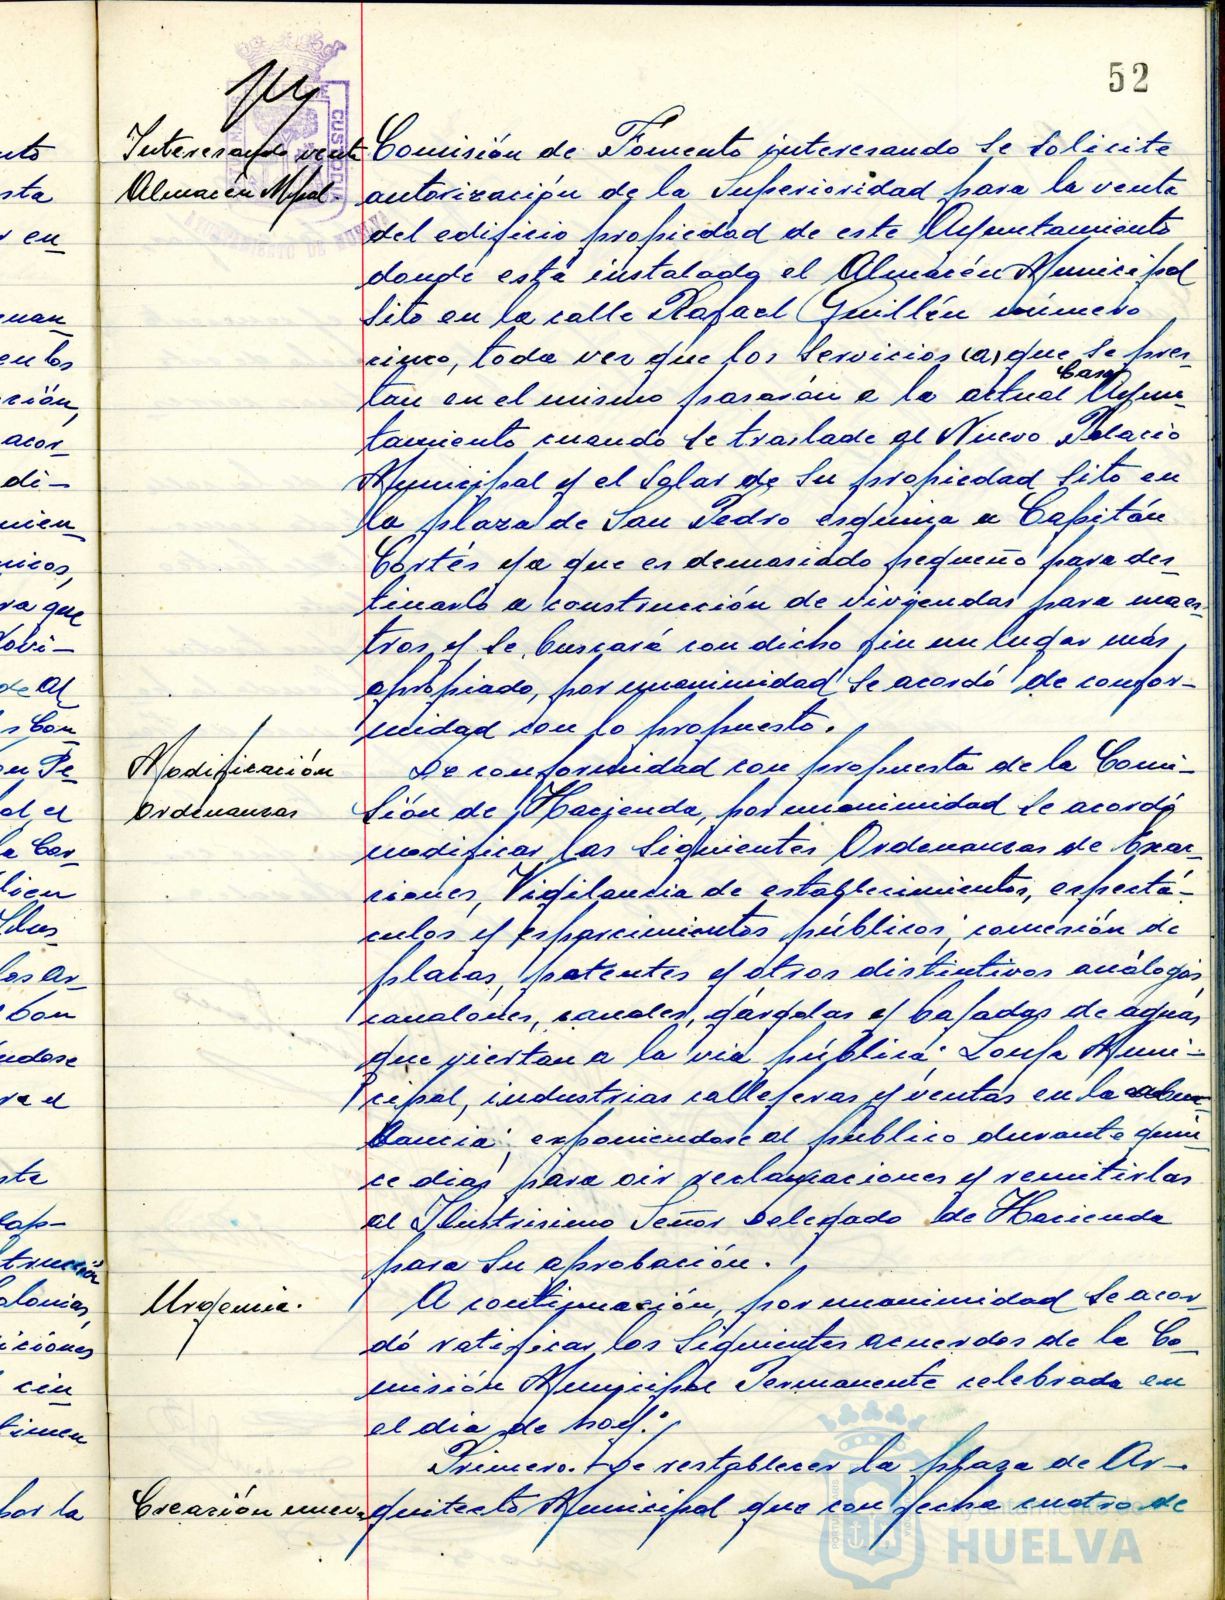 52
Interesando venta
Almacén Mpal.
Comisión de Fomento interesando se solicite
autorización de la Superioridad para la venta
del edificio propiedad de este Ayuntamiento
donde está instalado el Almacén Municipal
sito en la calle Rafael Guillén número
cinco, toda vez que los Servicios (a) que se pres-
tan en el mismo pasarán a la actual Casa Ayun-
tamiento cuando se traslade al Nuevo Palacio
Municipal y el solar de su propiedad sito en
la plaza de San Pedro esquina a Capitán
Cortés ya que es demasiado pequeño para des-
tinarlo a construcción de viviendas para maes-
tros y se buscará con dicho fin un lugar más
apropiado, por unanimidad se acordó de confor-
midad con lo propuesto.
Modificación
Ordenanzas
De conformidad con propuesta de la Comi-
sión de Hacienda, por unanimidad se acordó
modificar las siguientes Ordenanzas de Exac-
ciones, Vigilancia de establecimientos, espectá-
culos y esparcimientos públicos; concesión de
placas, patentes y otros distintivos análogos,
canalones, canales, gárgolas y bajadas de aguas
que viertan a la via pública; Lonja Muni-
cipal, industrias callejeras y ventas en la ambu-
lancia; exponiendose al público durante quin-
ce dias para oir reclamaciones y remitirlas
al Ilustrisimo Señor Delegado de Hacienda
para su aprobación.
Urgencia.
A continuación, por unanimidad se acor-
dó ratificar los siguientes acuerdos de la Co-
misión Municipal Permanente celebrada en
el dia de hoy:
Primero.- De restablecer la plaza de Ar-
Creación nueva
quitecto Municipal que con fecha cuatro de
Ayuntamiento de
HUELVA